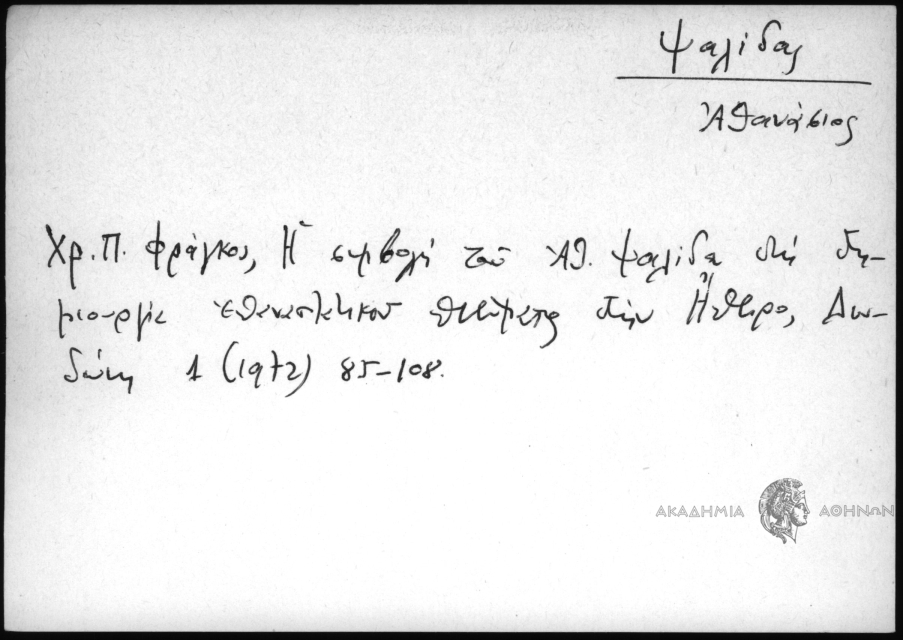 Ψαλίδας
Ἀθανάσιος
Χρ. Π. Φράγκος, Ἡ συμβολή τοῦ Ἀθ. Ψαλίδα στή δη-
μιουργία ἐπαναστατικοῦ πνεύματος στήν Ἤπειρο, Δω-
δώνη 1 (1972) 85-108.
ΑΚΑΔΗΜΙΑ ΑΘΗΝΩΝ